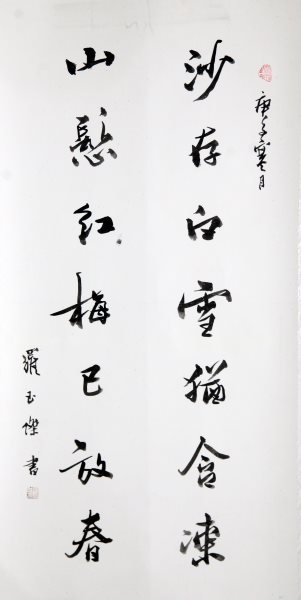 庚子寒月
沙存白雪猶含凍
山懸紅梅已放春
羅玉傑書